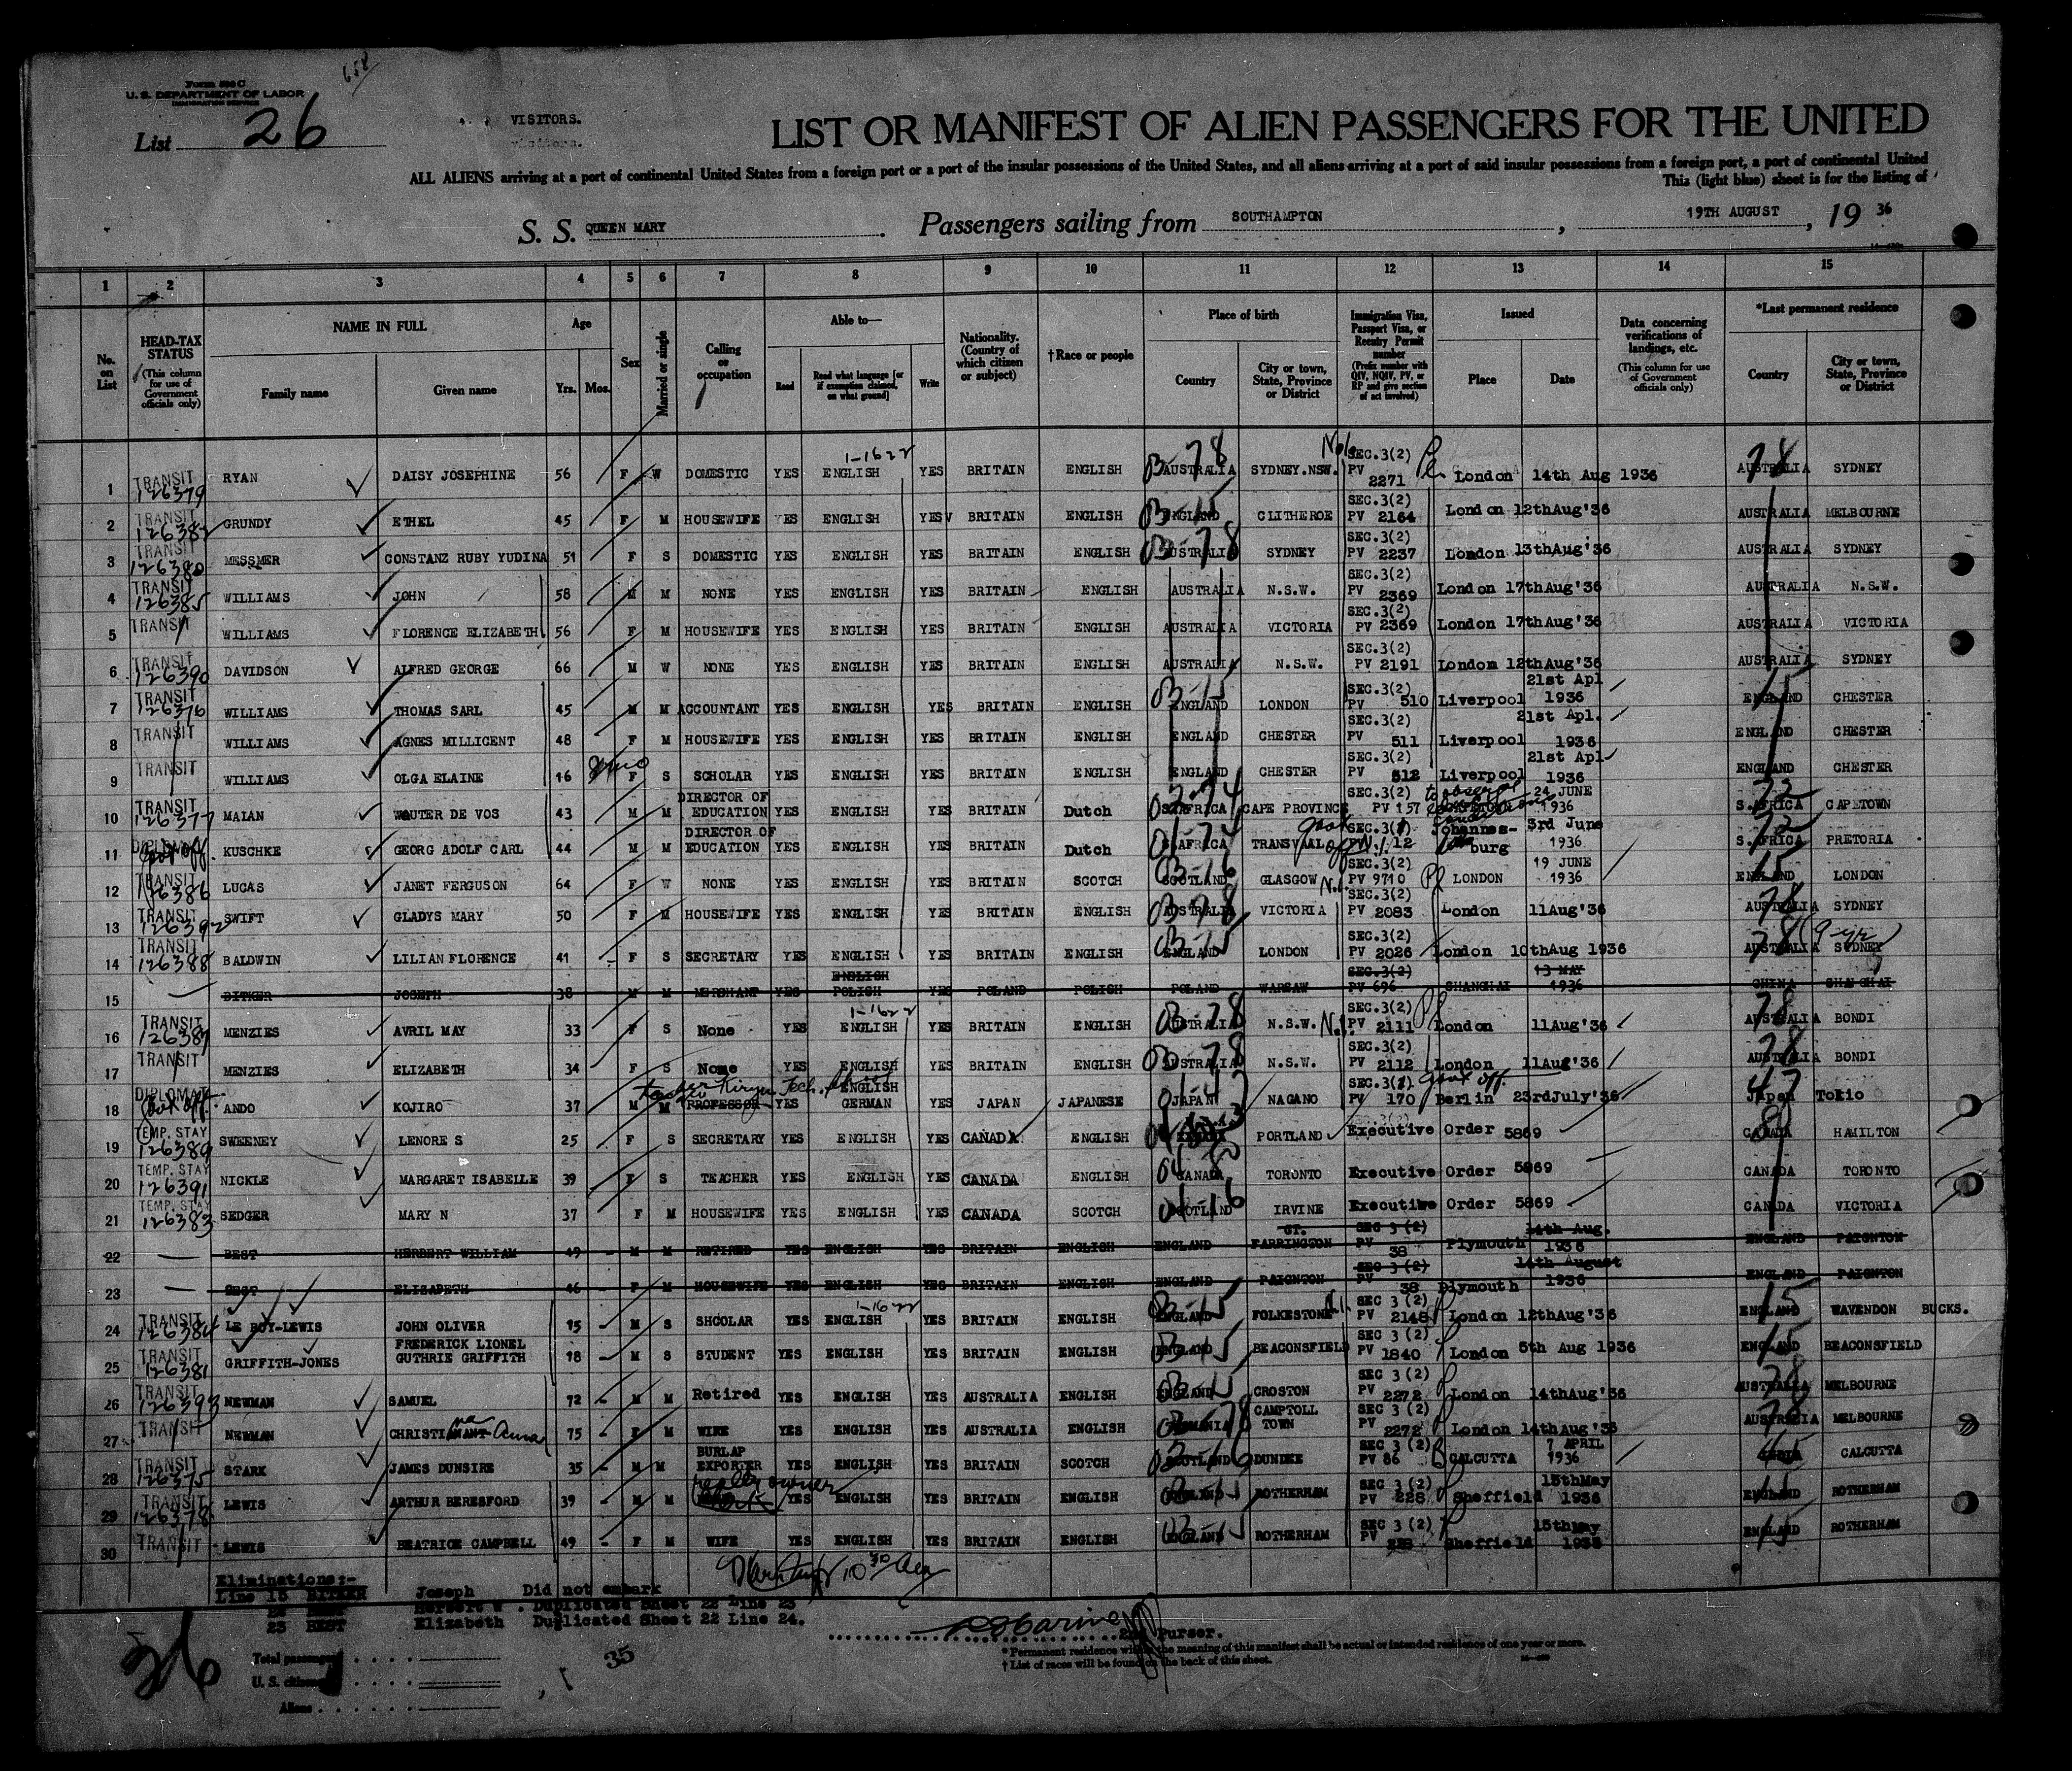 658
Form 500 C
U. S. DEPARTMENT OF LABOR
IMMIGRATION SERVICE
List 26
VISITORS.
LIST OR MANIFEST OF ALIEN PASSENGERS FOR THE UNITED
ALL ALIENS arriving at a port of continental United States from a foreign port or a port of the insular possessions of the United States, and all aliens arriving at a port of said insular possessions from a foreign port, a port of continental United
This (light blue) sheet is for the listing of
S. S. QUEEN MARY Passengers sailing from SOUTHAMPTON , 19TH AUGUST , 19 36
1 2 3 4 5 6 7 8 9 10 11 12 13 14 15
No. on List
HEAD-TAX STATUS (This column for use of Government officials only)
NAME IN FULL
Family name Given name
Age Yrs. Mos.
Sex
Married or single
Calling or occupation
Able to—
Read Read what language [or if exemption claimed, on what ground] Write
Nationality. (Country of which citizen or subject)
†Race or people
Place of birth
Country City or town, State, Province or District
Immigration Visa, Passport Visa, or Reentry Permit number (Prefix number with QIV, NQIV, PV, or RP and give section of act involved)
Issued
Place Date
Data concerning verifications of landings, etc. (This column for use of Government officials only)
*Last permanent residence
Country City or town, State, Province or District
1 TRANSIT 126379 RYAN DAISY JOSEPHINE 56 F W DOMESTIC YES ENGLISH 1-1622 YES BRITAIN ENGLISH AUSTRALIA 78 SYDNEY.NSW. SEC.3(2) PV 2271 London 14th Aug 1936 AUSTRALIA 78 SYDNEY
2 TRANSIT 126382 GRUNDY ETHEL 45 F M HOUSEWIFE YES ENGLISH YES BRITAIN ENGLISH ENGLAND 15 CLITHEROE SEC.3(2) PV 2164 London 12thAug'36 AUSTRALIA MELBOURNE
3 TRANSIT 126380 MESSMER CONSTANZ RUBY YUDINA 51 F S DOMESTIC YES ENGLISH YES BRITAIN ENGLISH AUSTRALIA 78 SYDNEY SEC.3(2) PV 2237 London 13thAug'36 AUSTRALIA SYDNEY
4 TRANSIT 126385 WILLIAMS JOHN 58 M M NONE YES ENGLISH YES BRITAIN ENGLISH AUSTRALIA N.S.W. SEC.3(2) PV 2369 London 17thAug'36 AUSTRALIA N.S.W.
5 TRANSIT WILLIAMS FLORENCE ELIZABETH 56 F M HOUSEWIFE YES ENGLISH YES BRITAIN ENGLISH AUSTRALIA VICTORIA SEC.3(2) PV 2369 London 17thAug'36 AUSTRALIA VICTORIA
6 TRANSIT 126390 DAVIDSON ALFRED GEORGE 66 M W NONE YES ENGLISH YES BRITAIN ENGLISH AUSTRALIA N.S.W. SEC.3(2) PV 2191 London 12thAug'36 AUSTRALIA SYDNEY
7 TRANSIT 126376 WILLIAMS THOMAS SARL 45 M M ACCOUNTANT YES ENGLISH YES BRITAIN ENGLISH ENGLAND 15 LONDON SEC.3(2) PV 510 Liverpool 21st Apl 1936 ENGLAND 15 CHESTER
8 TRANSIT WILLIAMS AGNES MILLICENT 48 F M HOUSEWIFE YES ENGLISH YES BRITAIN ENGLISH ENGLAND CHESTER SEC.3(2) PV 511 Liverpool 21st Apl. 1936 ENGLAND CHESTER
9 TRANSIT WILLIAMS OLGA ELAINE 16 F S SCHOLAR YES ENGLISH YES BRITAIN ENGLISH ENGLAND CHESTER SEC.3(2) PV 512 Liverpool 21st Apl 1936 ENGLAND CHESTER
10 TRANSIT 126377 MALAN WOUTER DE VOS 43 M M DIRECTOR OF EDUCATION YES ENGLISH YES BRITAIN Dutch S.AFRICA 74 CAPE PROVINCE SEC.3(2) PV 157 24 JUNE 1936 S.AFRICA 72 CAPETOWN
11 DIPLOMAT Gov't off. KUSCHKE GEORG ADOLF CARL 44 M M DIRECTOR OF EDUCATION YES ENGLISH YES BRITAIN Dutch S.AFRICA 74 TRANSVAAL SEC.3(1) 12 Johannes-burg 3rd June 1936 S.AFRICA 72 PRETORIA
12 TRANSIT 126386 LUCAS JANET FERGUSON 64 F W NONE YES ENGLISH YES BRITAIN SCOTCH SCOTLAND 16 GLASGOW SEC.3(2) PV 9710 LONDON 19 JUNE 1936 ENGLAND 15 LONDON
13 TRANSIT 126392 SWIFT GLADYS MARY 50 F M HOUSEWIFE YES ENGLISH YES BRITAIN ENGLISH AUSTRALIA 78 VICTORIA SEC.3(2) PV 2083 London 11Aug'36 AUSTRALIA 78 SYDNEY
14 TRANSIT 126388 BALDWIN LILIAN FLORENCE 41 F S SECRETARY YES ENGLISH YES BRITAIN ENGLISH ENGLAND 15 LONDON SEC.3(2) PV 2026 London 10thAug 1936 AUSTRALIA 78 (9-yr) SYDNEY
15 BITKER JOSEPH 38 M M MERCHANT YES ENGLISH POLISH YES POLAND POLISH POLAND WARSAW SEC.3(2) PV 696 SHANGHAI 13 MAY 1936 CHINA SHANGHAI
16 TRANSIT 126387 MENZIES AVRIL MAY 33 F S None YES ENGLISH 1-1622 YES BRITAIN ENGLISH AUSTRALIA 78 N.S.W. SEC.3(2) PV 2111 London 11Aug'36 AUSTRALIA 78 BONDI
17 TRANSIT MENZIES ELIZABETH 34 F S None YES ENGLISH YES BRITAIN ENGLISH AUSTRALIA 78 N.S.W. SEC.3(2) PV 2112 London 11Aug'36 AUSTRALIA 78 BONDI
18 DIPLOMAT Gov't off. ANDO KOJIRO 37 M M teacher Kiryu Tech. PROFESSOR YES ENGLISH GERMAN YES JAPAN JAPANESE JAPAN 47 NAGANO SEC.3(1) PV 170 Gov't off. Berlin 23rdJuly'36 Japan 47 Tokio
19 TEMP. STAY 126389 SWEENEY LENORE S 25 F S SECRETARY YES ENGLISH YES CANADA ENGLISH PORTLAND Executive Order 5869 CANADA 80 HAMILTON
20 TEMP. STAY 126391 NICKLE MARGARET ISABELLE 39 F S TEACHER YES ENGLISH YES CANADA ENGLISH CANADA 80 TORONTO Executive Order 5869 CANADA TORONTO
21 TEMP. STAY 126383 SEDGER MARY N 37 F M HOUSEWIFE YES ENGLISH YES CANADA SCOTCH SCOTLAND 16 IRVINE Executive Order 5869 CANADA VICTORIA
22 BEST HERBERT WILLIAM 49 M M RETIRED YES ENGLISH YES BRITAIN ENGLISH ENGLAND GT. FARRINGTON SEC 3 (2) PV 38 Plymouth 14th Aug. 1936 ENGLAND PAIGNTON
23 BEST ELIZABETH 46 F M HOUSEWIFE YES ENGLISH YES BRITAIN ENGLISH ENGLAND PAIGNTON SEC 3 (2) PV 38 Plymouth 14th August 1936 ENGLAND PAIGNTON
24 TRANSIT 126384 LE ROY-LEWIS JOHN OLIVER 15 M S SHCOLAR YES ENGLISH 1-1622 YES BRITAIN ENGLISH ENGLAND 15 FOLKESTONE SEC 3 (2) PV 2148 London 12thAug'36 ENGLAND 15 WAVENDON BUCKS.
25 TRANSIT 126381 GRIFFITH-JONES FREDERICK LIONEL GUTHRIE GRIFFITH 18 M S STUDENT YES ENGLISH YES BRITAIN ENGLISH ENGLAND 15 BEACONSFIELD SEC 3 (2) PV 1840 London 5th Aug 1936 ENGLAND 15 BEACONSFIELD
26 TRANSIT 126393 NEWMAN SAMUEL 72 M M Retired YES ENGLISH YES AUSTRALIA ENGLISH ENGLAND 15 CROSTON SEC 3 (2) PV 2272 London 14thAug'36 AUSTRALIA 78 MELBOURNE
27 TRANSIT NEWMAN CHRISTIANA Anna 75 F M WIFE YES ENGLISH YES AUSTRALIA ENGLISH 78 CAMPTOLL TOWN SEC 3 (2) PV 2272 London 14thAug'36 AUSTRALIA 78 MELBOURNE
28 TRANSIT 126375 STARK JAMES DUNSIRE 35 M M BURLAP EXPORTER YES ENGLISH YES BRITAIN SCOTCH SCOTLAND 16 DUNDEE SEC 3 (2) PV 86 CALCUTTA 7 APRIL 1936 INDIA CALCUTTA
29 TRANSIT 126378 LEWIS ARTHUR BERESFORD 39 M M really owner YES ENGLISH YES BRITAIN ENGLISH ENGLAND ROTHERHAM SEC 3 (2) PV 228 Sheffield 15thMay 1936 ENGLAND 15 ROTHERHAM
30 TRANSIT LEWIS BEATRICE CAMPBELL 49 F M WIFE YES ENGLISH YES BRITAIN ENGLISH ENGLAND 15 ROTHERHAM SEC 3 (2) PV Sheffield 15thMay 1936 ENGLAND 15 ROTHERHAM
Eliminations:-
Line 15 BITKER Joseph Did not embark
22 BEST Herbert W . Duplicated Sheet 22 Line 23
23 BEST Elizabeth Duplicated Sheet 22 Line 24.
Purser.
26
Total passengers
U. S. citizens
Aliens
35
* Permanent residence within the meaning of this manifest shall be actual or intended residence of one year or more.
† List of races will be found on the back of this sheet.